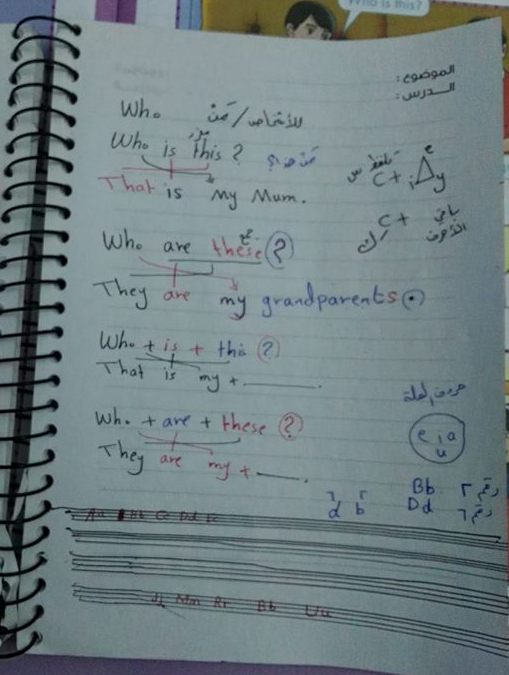 Who is this?
الموضوع:
الـــدرس:
Who للأشخاص / مَنْ
مفرد
Who is this? مَن هذا؟
That is My Mum.
تلفظ س
C + i e y
باقي الأحرف
C + ك
جمع
Who are these?
They are my grandparents.
Who + is + this?
That is my + ______.
Who + are + these?
They are my + ____.
حروف العلة
e i a u
Bb رقم ٢
Dd رقم ٦
٦ ٢
d b
Aa Bb Cc Dd Ee
Mm Rr Bb Uu